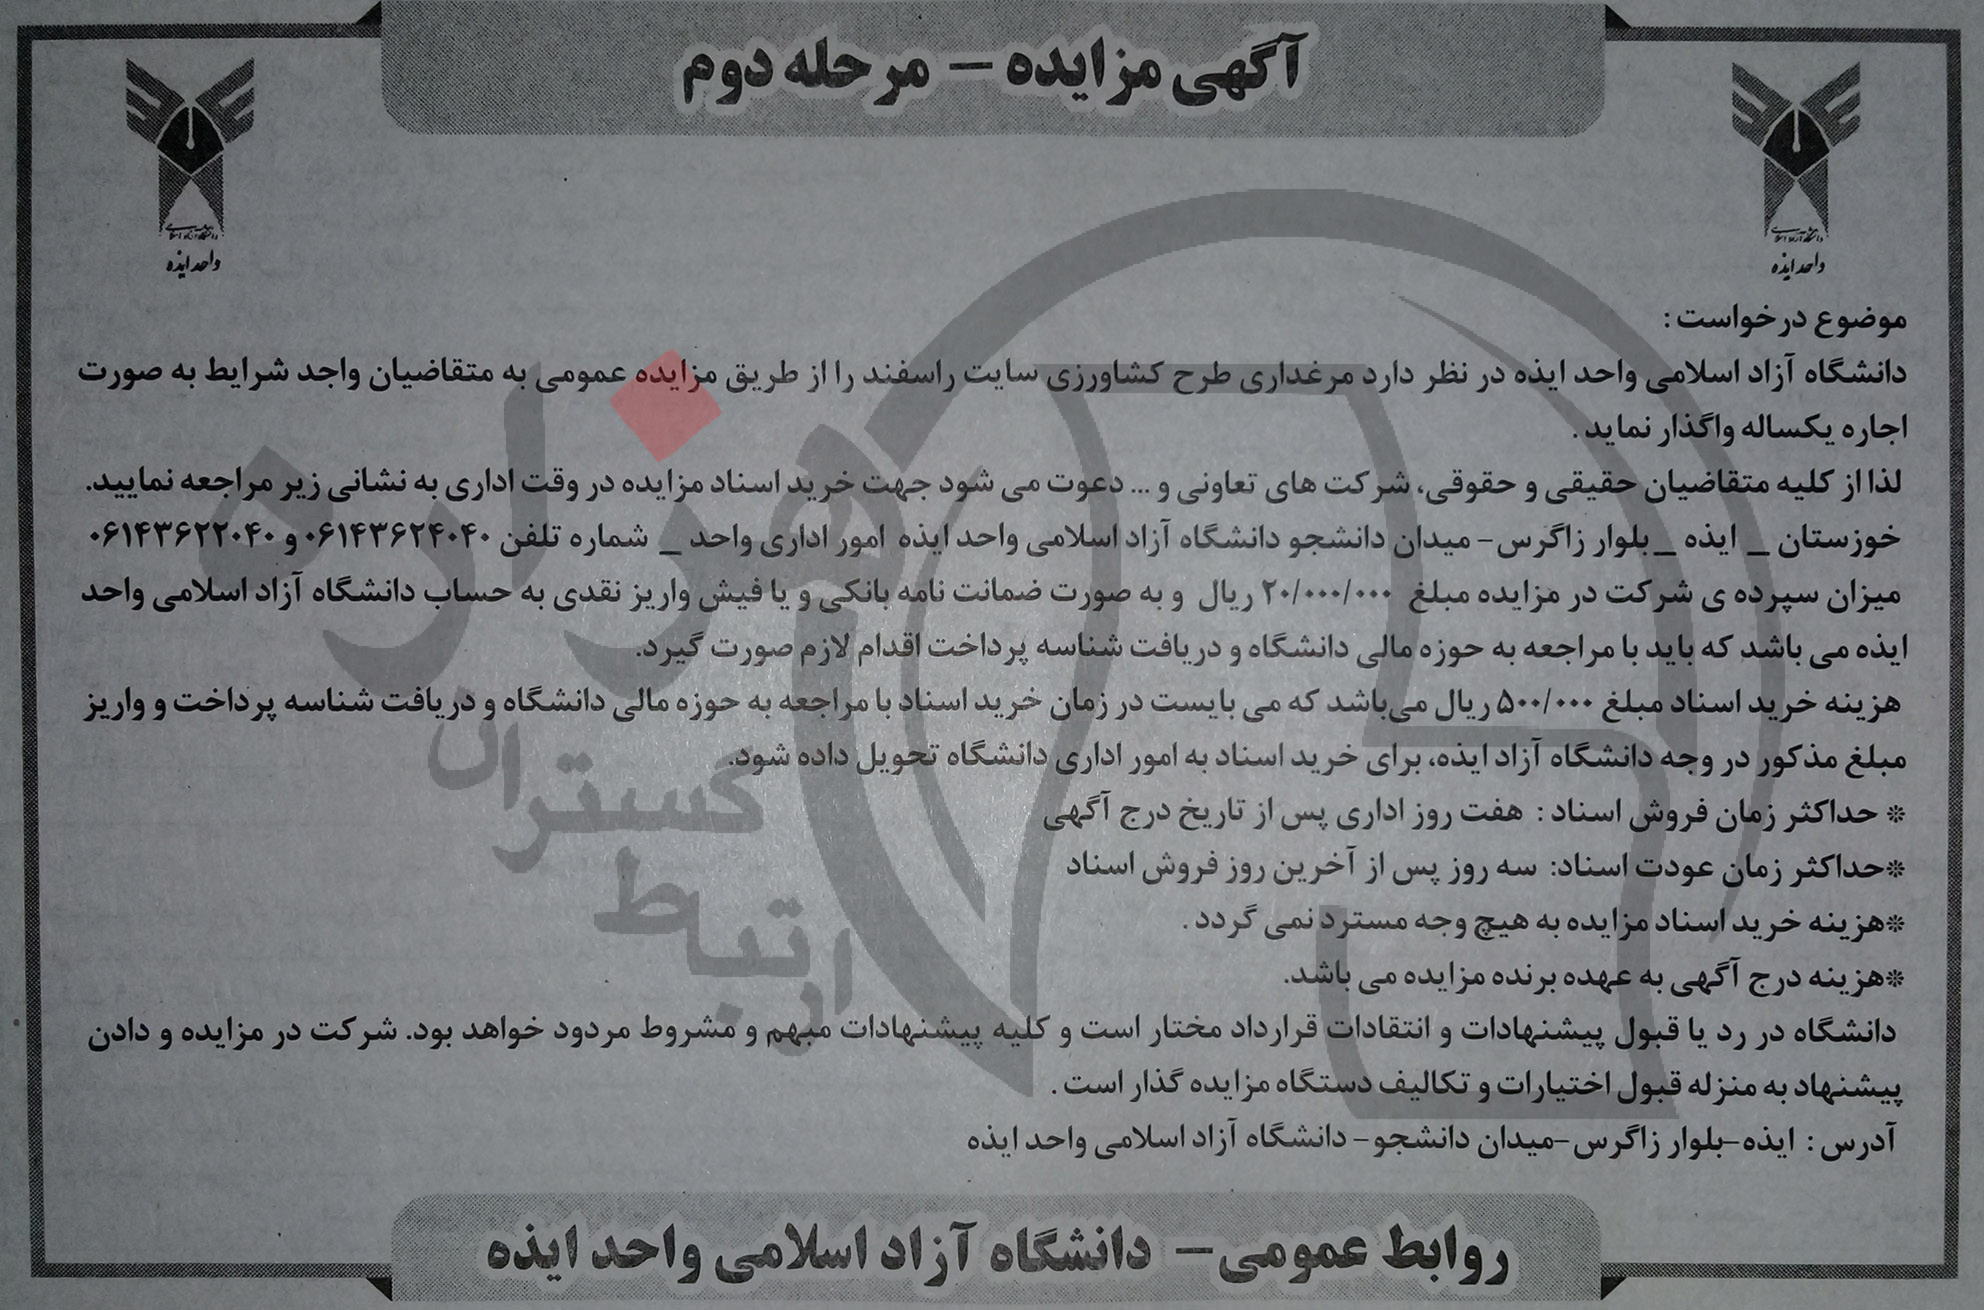 آگهی مزایده – مرحله دوم
دانشگاه آزاد اسلامی
واحد ایذه
دانشگاه آزاد اسلامی
واحد ایذه
موضوع درخواست :
دانشگاه آزاد اسلامی واحد ایذه در نظر دارد مرغداری طرح کشاورزی سایت راسفند را از طریق مزایده عمومی به متقاضیان واجد شرایط به صورت
اجاره یکساله واگذار نماید .
لذا از کلیه متقاضیان حقیقی و حقوقی، شرکت های تعاونی و ... دعوت می شود جهت خرید اسناد مزایده در وقت اداری به نشانی زیر مراجعه نمایید.
خوزستان _ ایذه _ بلوار زاگرس- میدان دانشجو دانشگاه آزاد اسلامی واحد ایذه امور اداری واحد _ شماره تلفن ۰۶۱۴۳۶۲۴۰۴۰ و ۰۶۱۴۳۶۲۲۰۴۰
میزان سپرده ی شرکت در مزایده مبلغ ۲۰/۰۰۰/۰۰۰ ریال و به صورت ضمانت نامه بانکی و یا فیش واریز نقدی به حساب دانشگاه آزاد اسلامی واحد
ایذه می باشد که باید با مراجعه به حوزه مالی دانشگاه و دریافت شناسه پرداخت اقدام لازم صورت گیرد.
هزینه خرید اسناد مبلغ ۵۰۰/۰۰۰ ریال می‌باشد که می بایست در زمان خرید اسناد با مراجعه به حوزه مالی دانشگاه و دریافت شناسه پرداخت و واریز
مبلغ مذکور در وجه دانشگاه آزاد ایذه، برای خرید اسناد به امور اداری دانشگاه تحویل داده شود.
* حداکثر زمان فروش اسناد : هفت روز اداری پس از تاریخ درج آگهی
*حداکثر زمان عودت اسناد: سه روز پس از آخرین روز فروش اسناد
*هزینه خرید اسناد مزایده به هیچ وجه مسترد نمی گردد .
*هزینه درج آگهی به عهده برنده مزایده می باشد.
دانشگاه در رد یا قبول پیشنهادات و انتقادات قرارداد مختار است و کلیه پیشنهادات مبهم و مشروط مردود خواهد بود. شرکت در مزایده و دادن
پیشنهاد به منزله قبول اختیارات و تکالیف دستگاه مزایده گذار است .
آدرس : ایذه-بلوار زاگرس-میدان دانشجو- دانشگاه آزاد اسلامی واحد ایذه
روابط عمومی– دانشگاه آزاد اسلامی واحد ایذه
هزاره
گستران
ارتباط